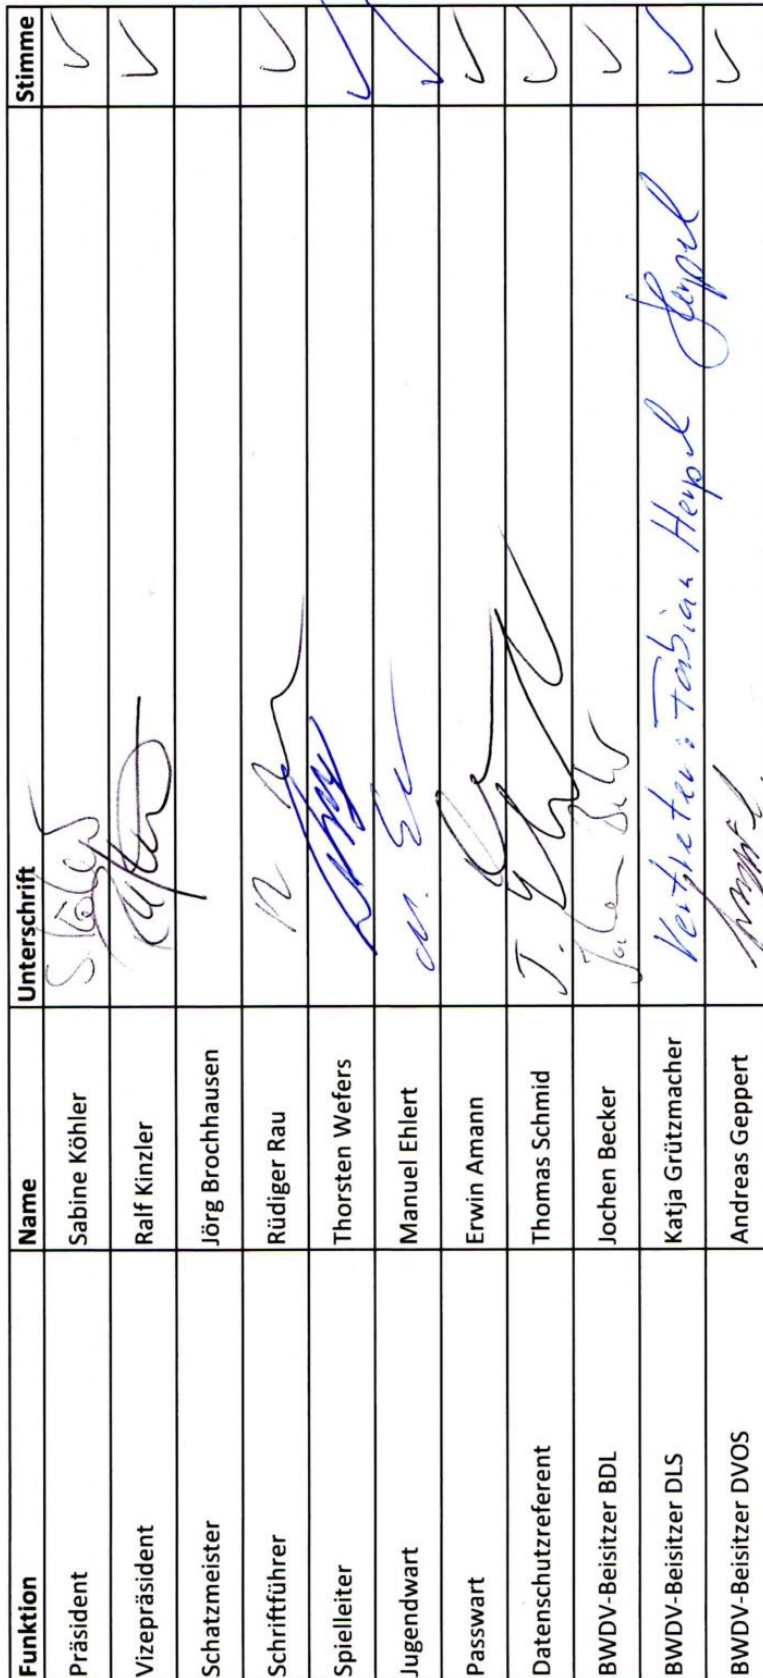 Funktion Name Unterschrift Stimme
Präsident Sabine Köhler S. Köhler ✓
Vizepräsident Ralf Kinzler ✓
Schatzmeister Jörg Brochhausen
Schriftführer Rüdiger Rau ✓
Spielleiter Thorsten Wefers ✓
Jugendwart Manuel Ehlert ✓
Passwart Erwin Amann ✓
Datenschutzreferent Thomas Schmid ✓
BWDV-Beisitzer BDL Jochen Becker ✓
BWDV-Beisitzer DLS Katja Grützmacher Vertreter: Fabian Hempel Hempel ✓
BWDV-Beisitzer DVOS Andreas Geppert ✓